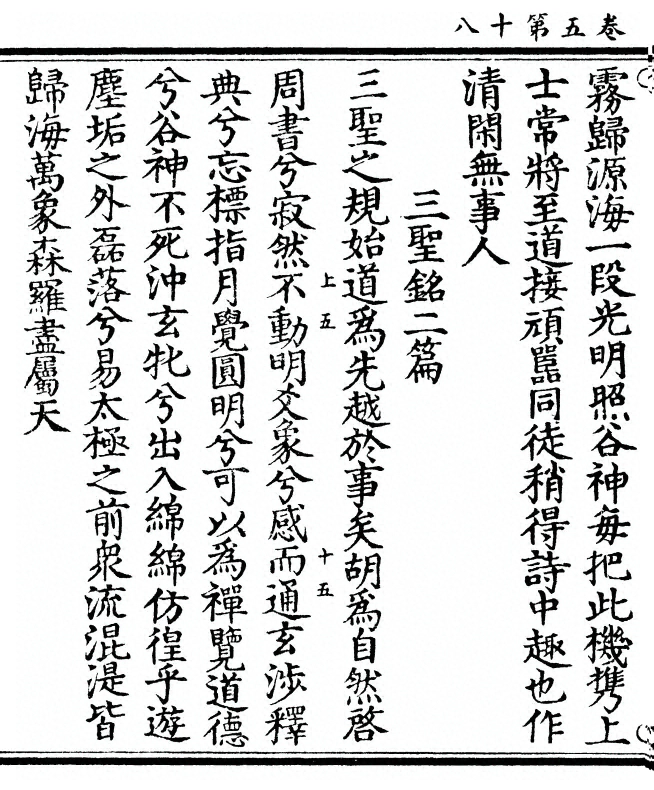 卷五第十八
霧歸源海一段光明照谷神每把此機携上
士常將至道接頑嚚同徒稍得詩中趣也作
清閑無事人
三聖銘二篇
三聖之規始道爲先越於事矣胡爲自然啓
上五
十五
周書兮寂然不動明爻象兮感而通玄涉釋
典兮忘標指月覺圓明兮可以爲禪覽道德
兮谷神不死沖玄牝兮出入綿綿仿徨乎遊
塵垢之外磊落兮易太極之前衆流混湜皆
歸海萬象森羅盡屬天